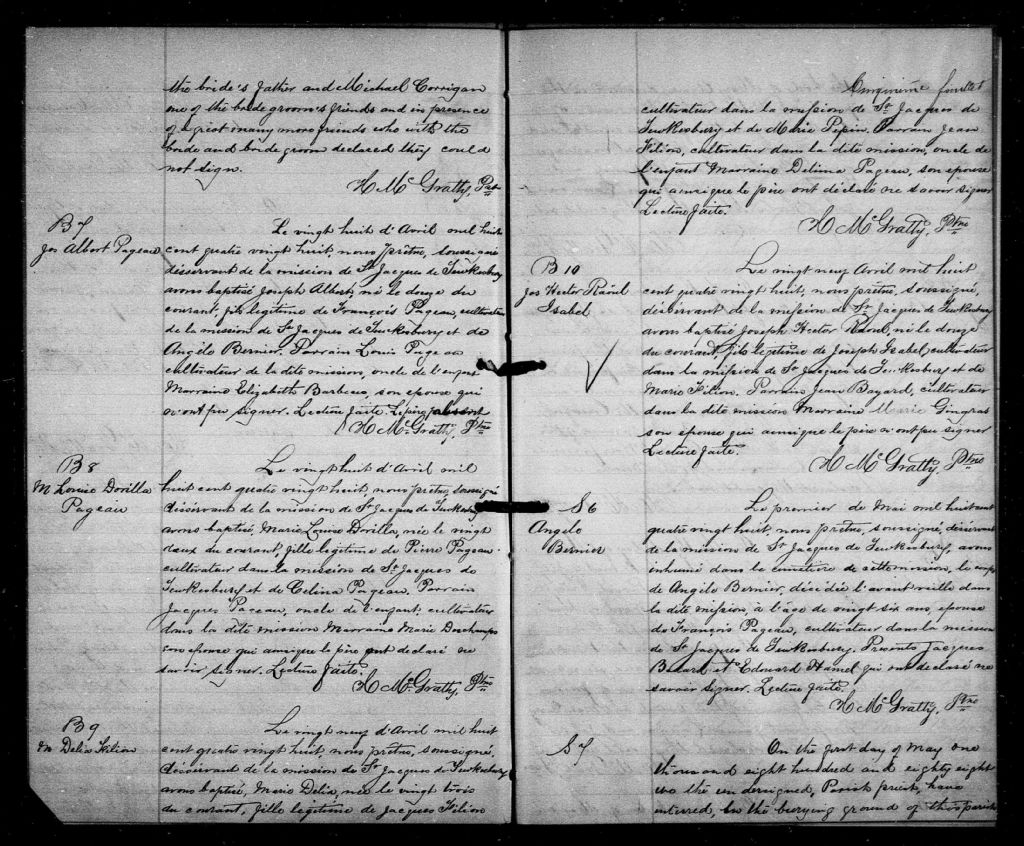 the bride's father and Michael Corrigan
one of the bride groom's friends and in presence
of a great many more friends who with the
bride and bride groom declared they could
not sign.
H McGratty, Ptr
B 7
Jos Albert Pageau
Le vingt huit d'Avril mil huit
cent quatre vingt huit, nous prêtre, soussigné
désservant de la mission de St Jacques de Tewkesbury
avons baptisé Joseph Albert, né le douze du
courant, fils legitime de François Pageau, cultivateur
de la mission de St Jacques de Tewkesbury et de
Angèle Bernier. Parrain Louis Pageau
cultivateur de la dite mission, oncle de l'enfant
Marraine Elizabeth Barbeau, son epouse qui
n'ont pu signer. Lecture faite. Le père absent
H McGratty, Ptre
B 8
M Louise Dorilla
Pageau
Le vingt huit d'Avril mil
huit cent quatre vingt huit, nous prêtre, soussigné
désservant de la mission de St Jacques de Tewkesbury
avons baptisé, Marie Louise Dorilla, née le vingt
deux du courant, fille legitime de Pierre Pageau
cultivateur dans la mission de St Jacques de
Tewkesbury et de Celina Pageau. Parrain
Jacques Pageau, oncle de l'enfant, cultivateur
dans la dite mission Marraine Marie Deschamps
son epouse qui ainsique le père ont declaré ne
savoir signer. Lecture faite.
H McGratty, Ptre
B 9
M Delia Filion
Le vingt neuf d'Avril mil huit
cent quatre vingt huit, nous prêtre, soussigné,
désservant de la mission de St Jacques de Tewkesbury
avons baptisé, Marie Delia, née le vingt trois
du courant, fille legitime de Jacques Filion
Cinquième feuillet
cultivateur dans la mission de St Jacques de
Tewkesbury et de Marie Pepin. Parrain Jean
Filion, cultivateur dans la dite mission, oncle de
l'enfant Marraine Delima Pageau, son epouse
qui ainsique le père ont déclaré ne savoir signer
Lecture faite.
H McGratty, Ptre
B 10
Jos Hector Raoul
Isabel
Le vingt neuf Avril mil huit
cent quatre vingt huit, nous prêtre, soussigné,
désservant de la mission de St Jacques de Tewkesbury
avons baptisé Joseph Hector Raoul, né le douze
du courant, fils legitime de Joseph Isabel, cultivateur
dans la mission de St Jacques de Tewkesbury et de
Marie Filion. Parrain Jean Bayard, cultivateur
dans la dite mission Marraine Marie Gingras
son epouse qui ainsique le père n'ont pu signer
Lecture faite.
H McGratty, Ptre
S 6
Angèle
Bernier
Le premier de Mai mil huit cent
quatre vingt huit, nous prêtre, soussigné, désservant
de la mission de St Jacques de Tewkesbury, avons
inhumé dans le cimetière de cette mission, le corps
de Angèle Bernier, décédée l'avant veille dans
la dite mission, à l'âge de vingt six ans, epouse
de François Pageau, cultivateur dans la mission
de St Jacques de Tewkesbury. Presents Jacques
Beard et Edward Hamel qui ont declaré ne
savoir signer. Lecture faite.
H McGratty, Ptre
S 7
On the first day of May one
thousand eight hundred and eighty eight
we the undersigned, Parish priest, have
interred, in the burying ground of this parish